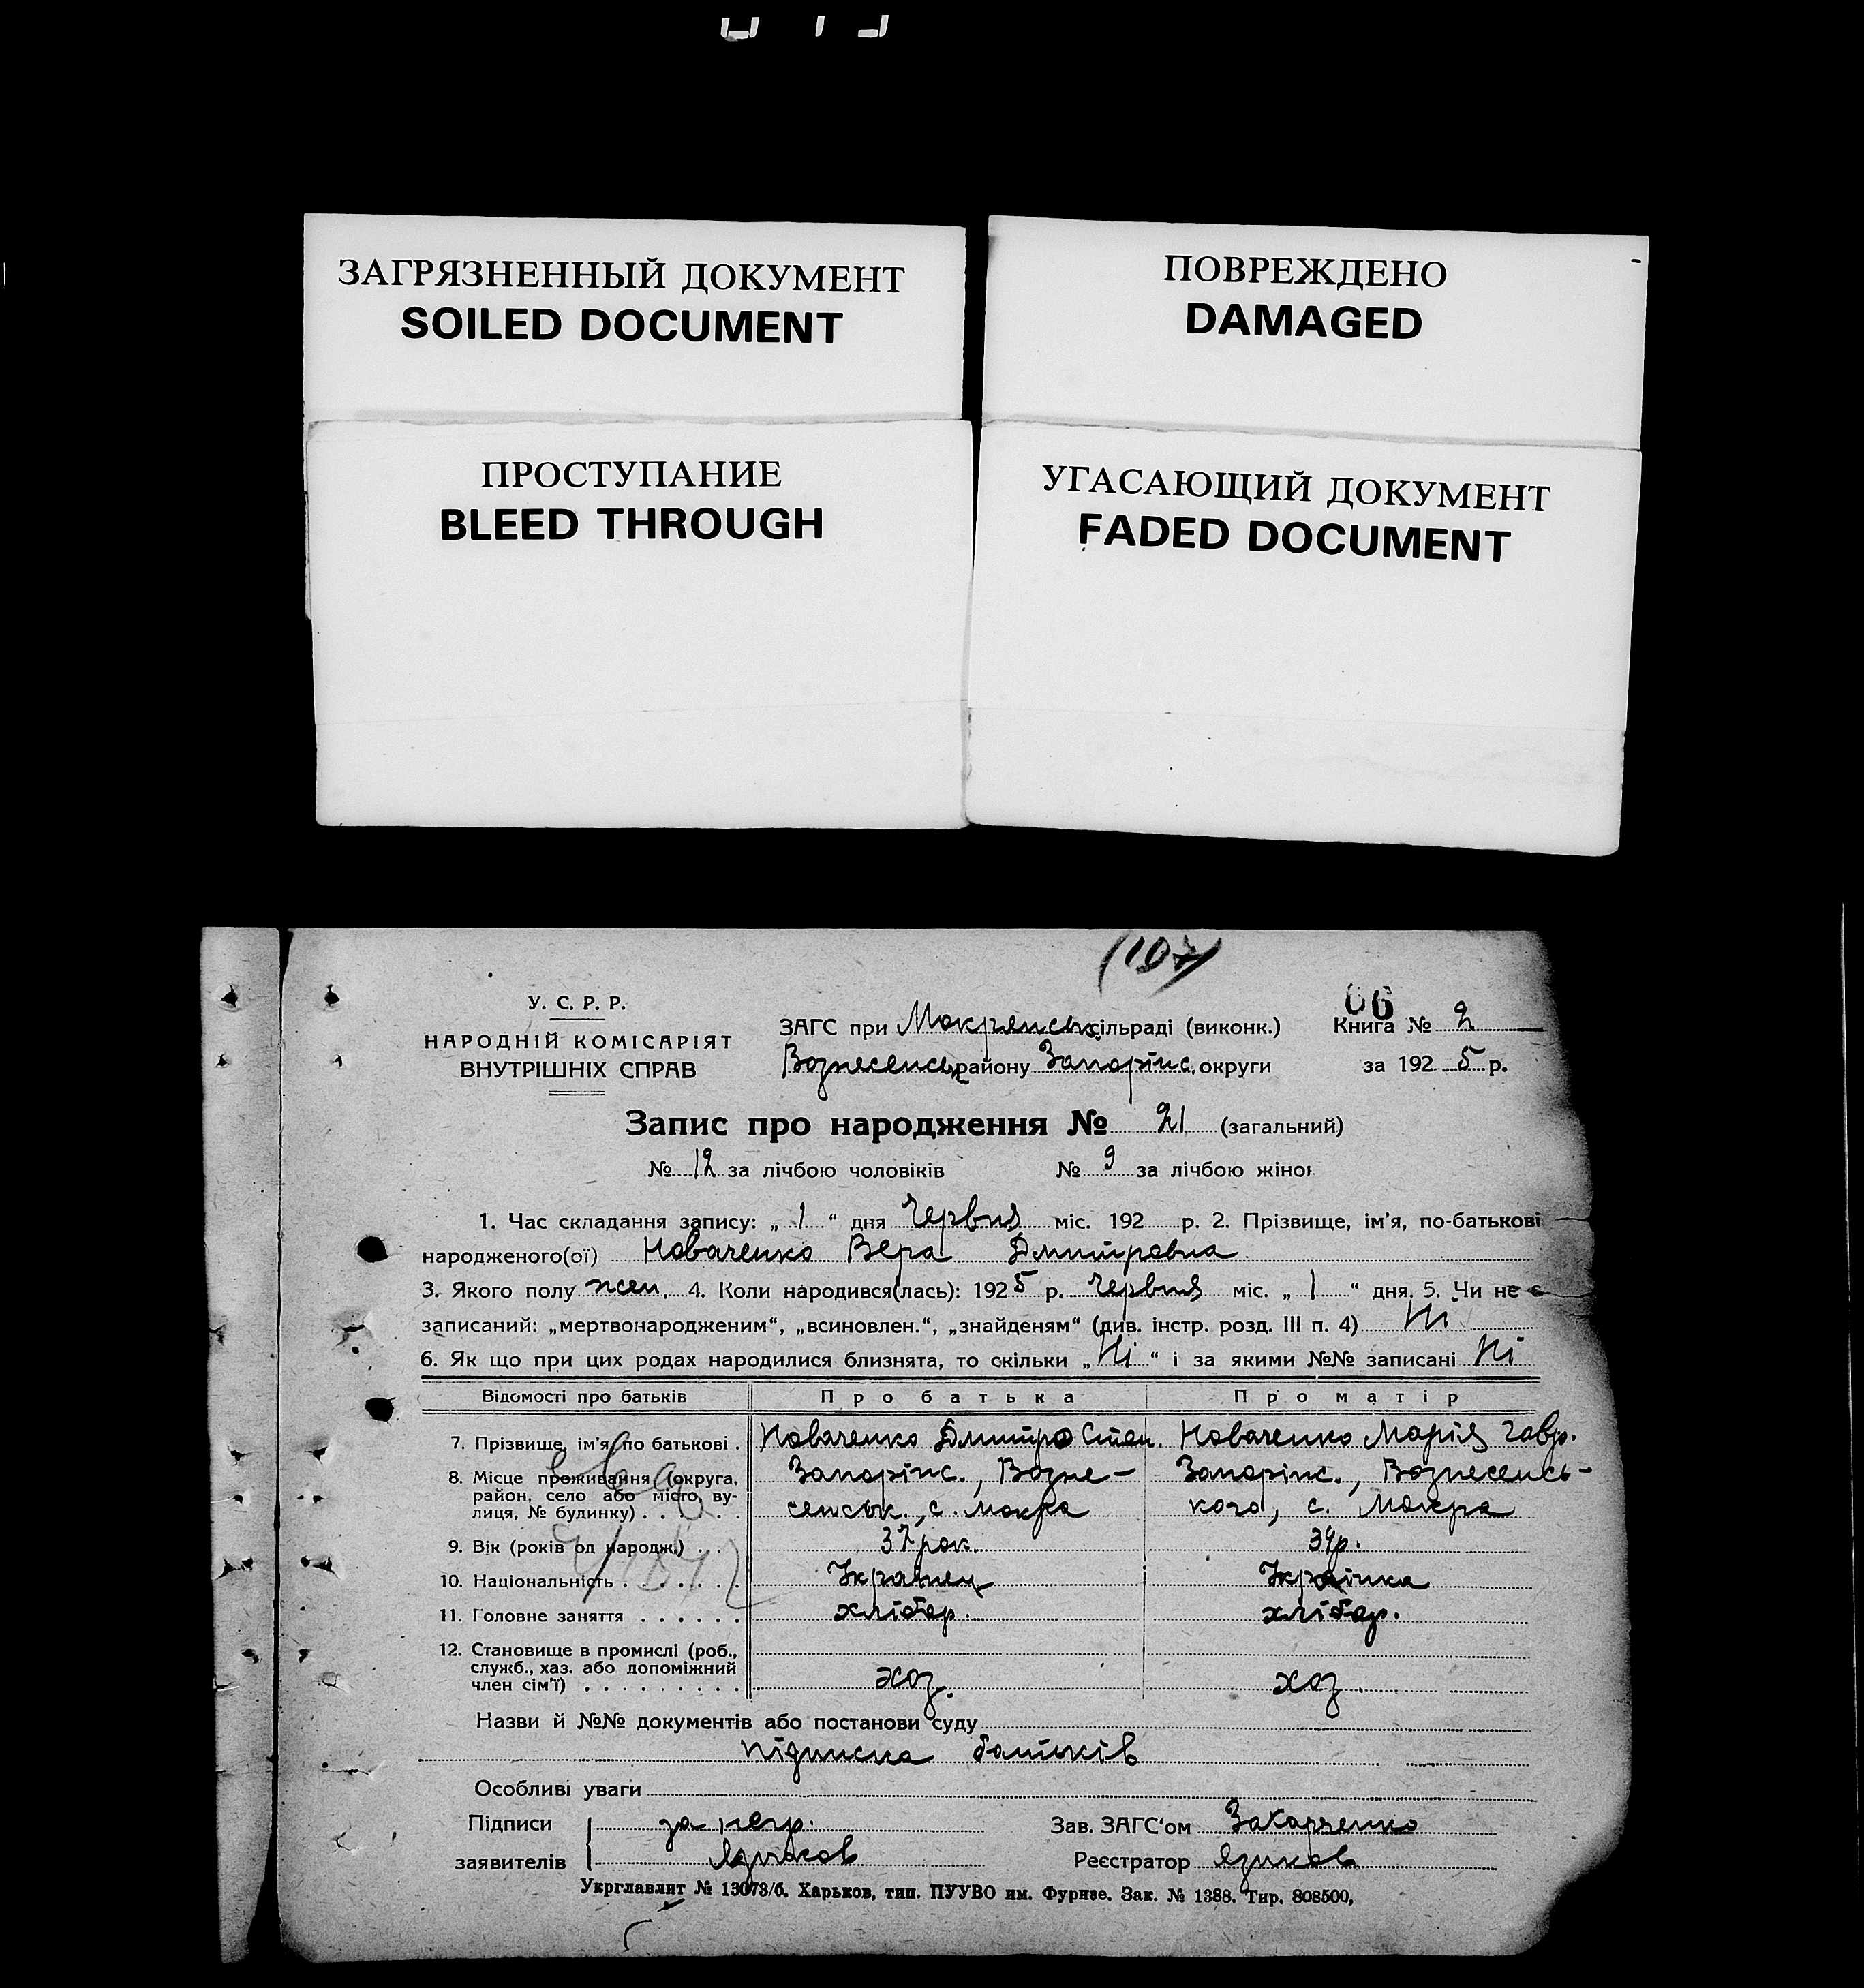 ЗАГРЯЗНЕННЫЙ ДОКУМЕНТ
SOILED DOCUMENT
ПОВРЕЖДЕНО
DAMAGED
ПРОСТУПАНИЕ
BLEED THROUGH
УГАСАЮЩИЙ ДОКУМЕНТ
FADED DOCUMENT
(107)
06
У. С. Р. Р.
НАРОДНІЙ КОМІСАРІЯТ
ВНУТРІШНІХ СПРАВ
ЗАГС при Мокрянськ. сільраді (виконк.)
Вознесенськ району Запоріпс. округи
Книга № 2
за 192 5 р.
Запис про народження № 21 (загальний)
№ 12 за лічбою чоловіків № 9 за лічбою жінок
1. Час складання запису: „ 1 “ дня Червня міс. 192 р. 2. Прізвище, ім'я, по-батькові
народженого(ої) Новаченко Вера Дмитровна
3. Якого полу жен. 4. Коли народився(лась): 192 5 р. Червня міс. „ 1 “ дня. 5. Чи не є
записаний: „мертвонародженим“, „всиновлен.“, „знайденям“ (див. інстр. розд. III п. 4) Ні
6. Як що при цих родах народилися близнята, то скільки „ Ні “ і за якими №№ записані Ні
Відомості про батьків Про батька Про матір
7. Прізвище, ім'я, по батькові . Новаченко Дмитро Степ. Новаченко Марія Гавр.
8. Місце проживання (округа, район, село або місто, вулиця, № будинку) . . . . . .
Запоріпс., Возне-
сенськ., с. Мокра
Запоріпс., Вознесенсь-
кого, с. Мокра
9. Вік (років од народж.) . . . 37 рок. 34 р.
10. Національність . . . . . . . Українец Українка
11. Головне заняття . . . . . . хлібор. хлібор.
12. Становище в промислі (роб.,
служб., хаз. або допоміжний
член сім'ї) . . . . . . . . . хоз. хоз.
Назви й №№ документів або постанови суду
підписка батьків
Особливі уваги
Підписи
заявителів
за негр.
Язиков
Зав. ЗАГС'ом Захарченко
Реєстратор Язиков
Укрглавлит № 13073/б. Харьков, тип. ПУУВО им. Фрунзе. Зак. № 1388. Тир. 808500,